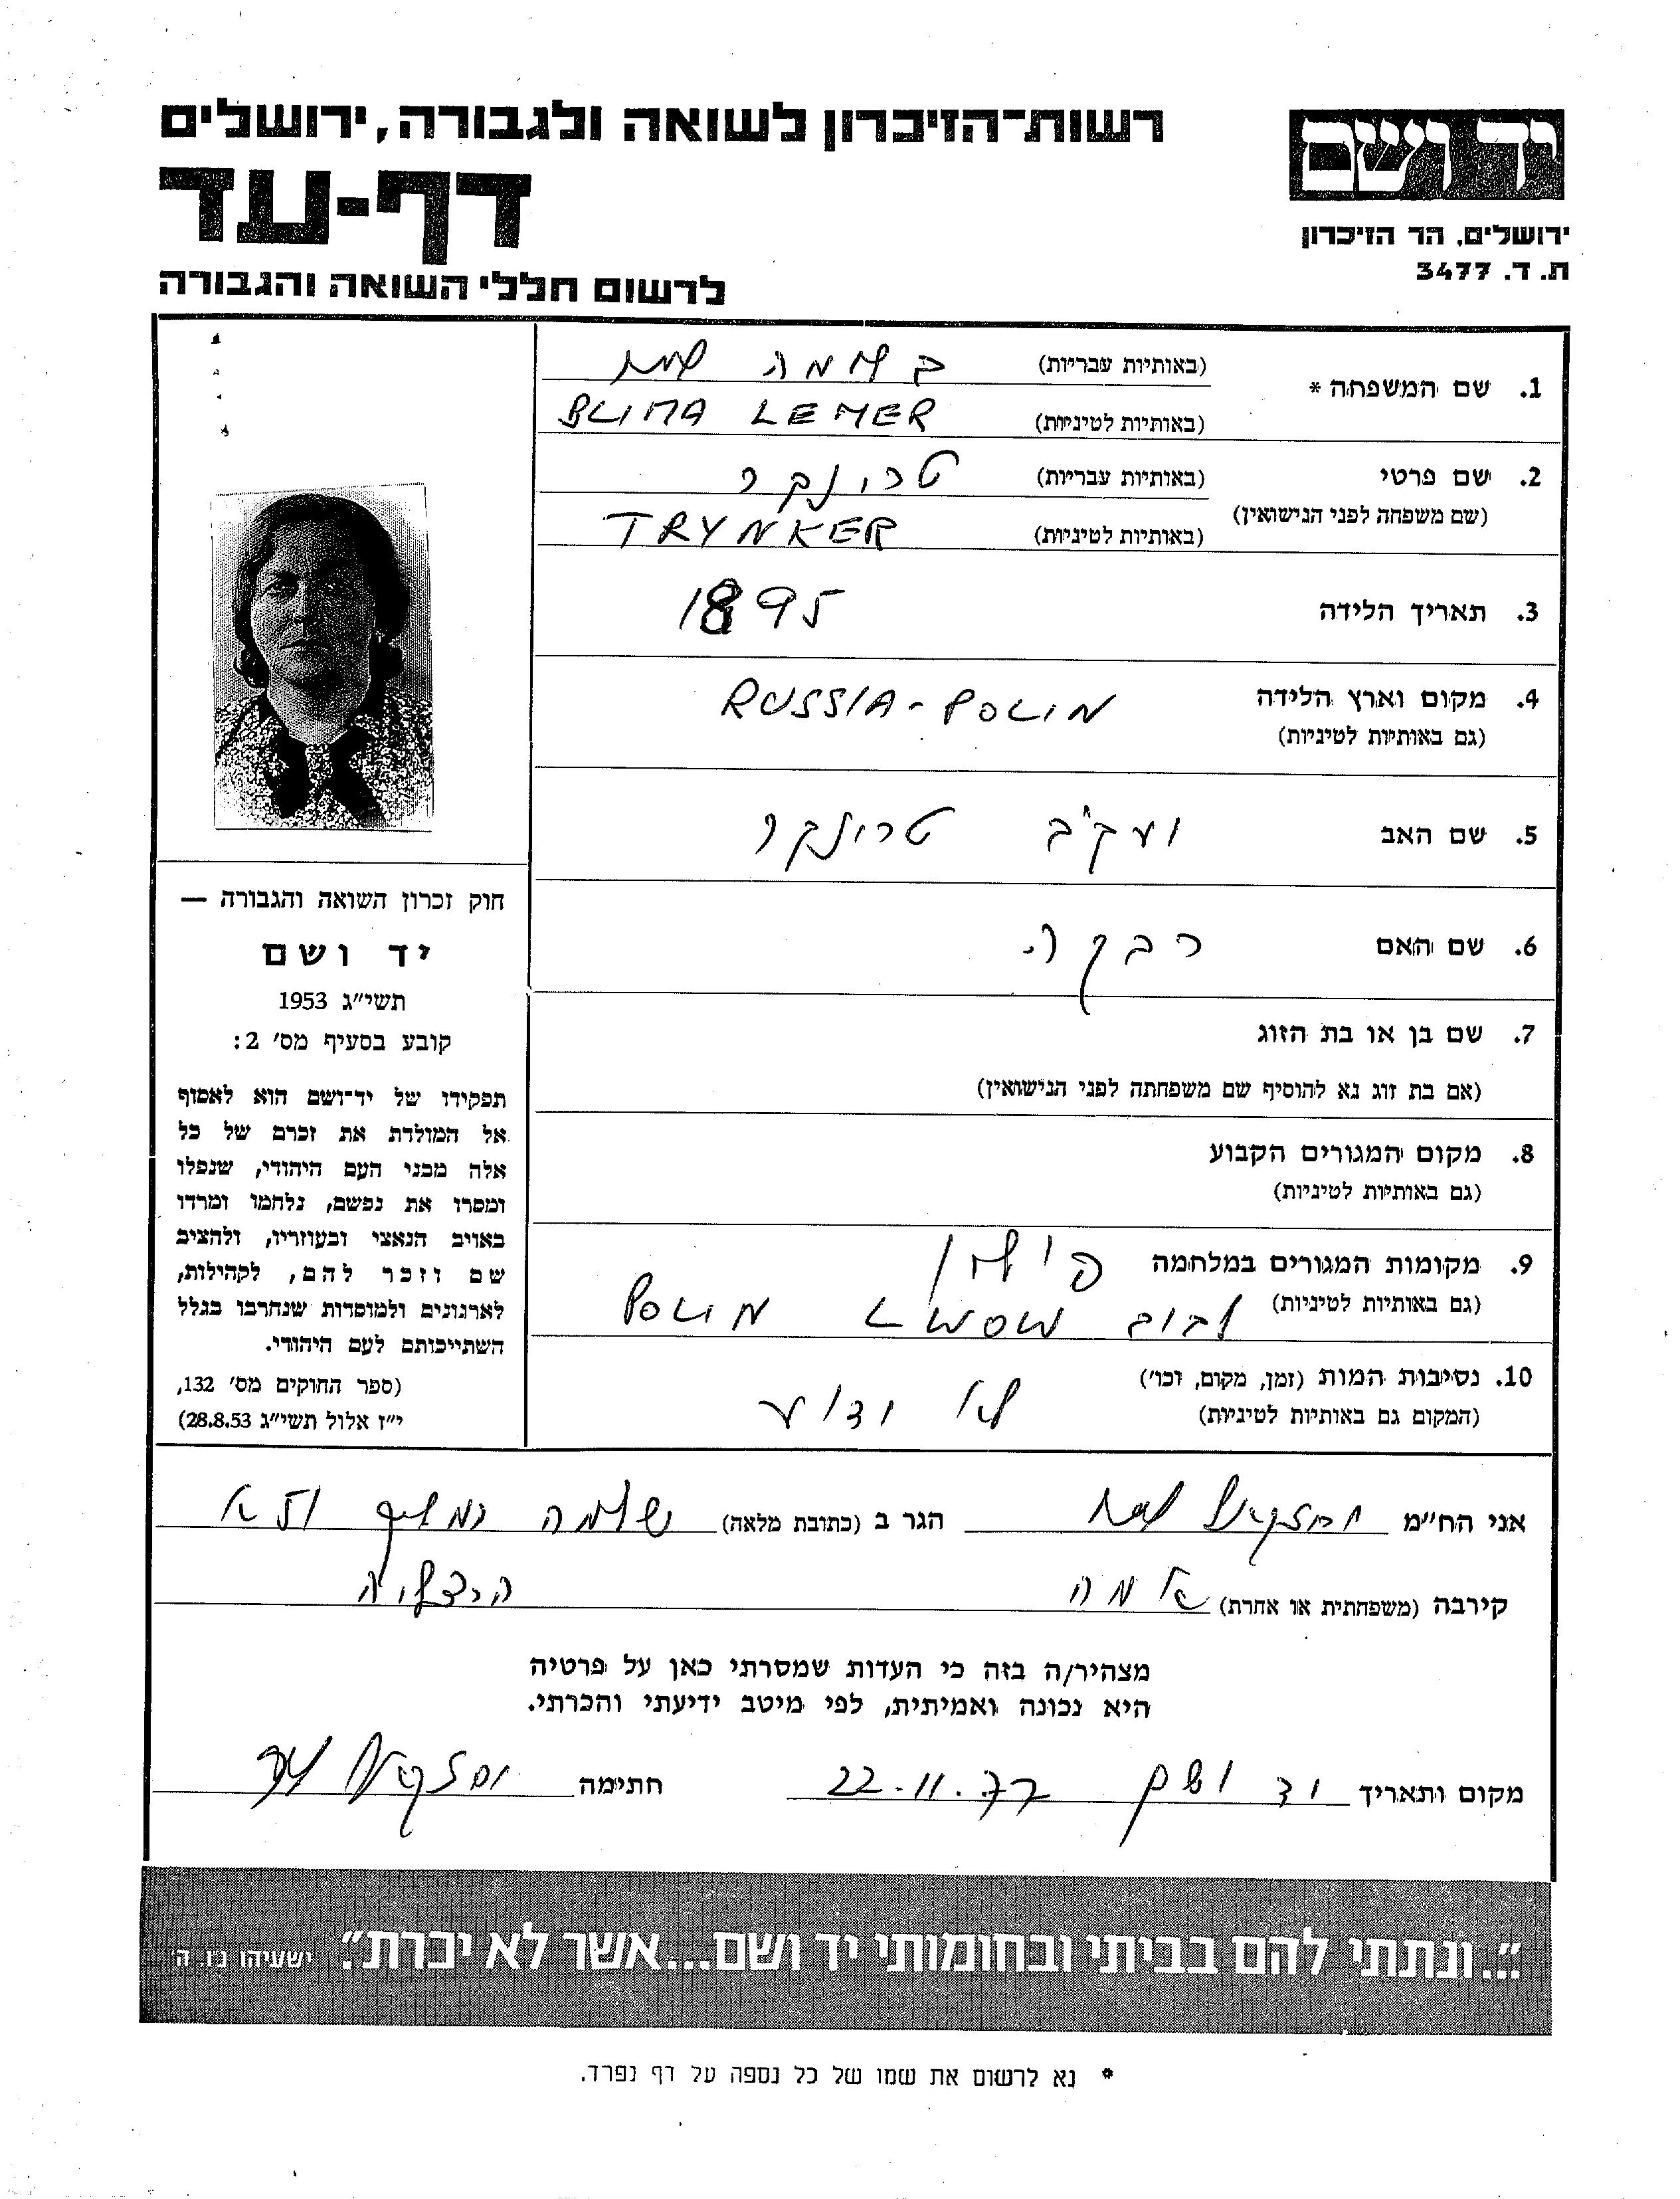 רשות־הזיכרון לשואה ולגבורה, ירושלים
יד ושם
דף-עד
ירושלים, הר הזיכרון
ת. ד. 3477
לרשום חללי השואה והגבורה
1. שם המשפחה * (באותיות עבריות)
(באותיות לטיניות) BLIMA LEMER
2. שם פרטי (באותיות עבריות) טרינקר
(שם משפחה לפני הנישואין) (באותיות לטיניות) TRYNKER
3. תאריך הלידה 1895
4. מקום וארץ הלידה RUSSIA - POLIN
(גם באותיות לטיניות)
5. שם האב יעקב טרינקר
6. שם האם רבקה
7. שם בן או בת הזוג
(אם בת זוג נא להוסיף שם משפחתה לפני הנישואין)
8. מקום המגורים הקבוע
(גם באותיות לטיניות)
9. מקומות המגורים במלחמה פולין
(גם באותיות לטיניות) לבוב LWOW POLIN
10. נסיבות המות (זמן, מקום, וכו') לא ידוע
(המקום גם באותיות לטיניות)
חוק זכרון השואה והגבורה —
יד ושם
תשי״ג 1953
קובע בסעיף מס' 2:
תפקידו של יד־ושם הוא לאסוף
אל המולדת את זכרם של כל
אלה מבני העם היהודי, שנפלו
ומסרו את נפשם, נלחמו ומרדו
באויב הנאצי ובעוזריו, ולהציב
שם וזכר להם, לקהילות,
לארגונים ולמוסדות שנחרבו בגלל
השתייכותם לעם היהודי.
(ספר החוקים מס' 132,
י״ז אלול תשי״ג 28.8.53)
אני הח״מ הגר ב (כתובת מלאה) שלמה המלך
קירבה (משפחתית או אחרת) אמה הרצליה
מצהיר/ה בזה כי העדות שמסרתי כאן על פרטיה
היא נכונה ואמיתית, לפי מיטב ידיעתי והכרתי.
מקום ותאריך יד ושם 22.11.77 חתימה
"...ונתתי להם בביתי ובחומותי יד ושם...אשר לא יכרת". ישעיהו נ״ו ה'
* נא לרשום את שמו של כל נספה על דף נפרד.